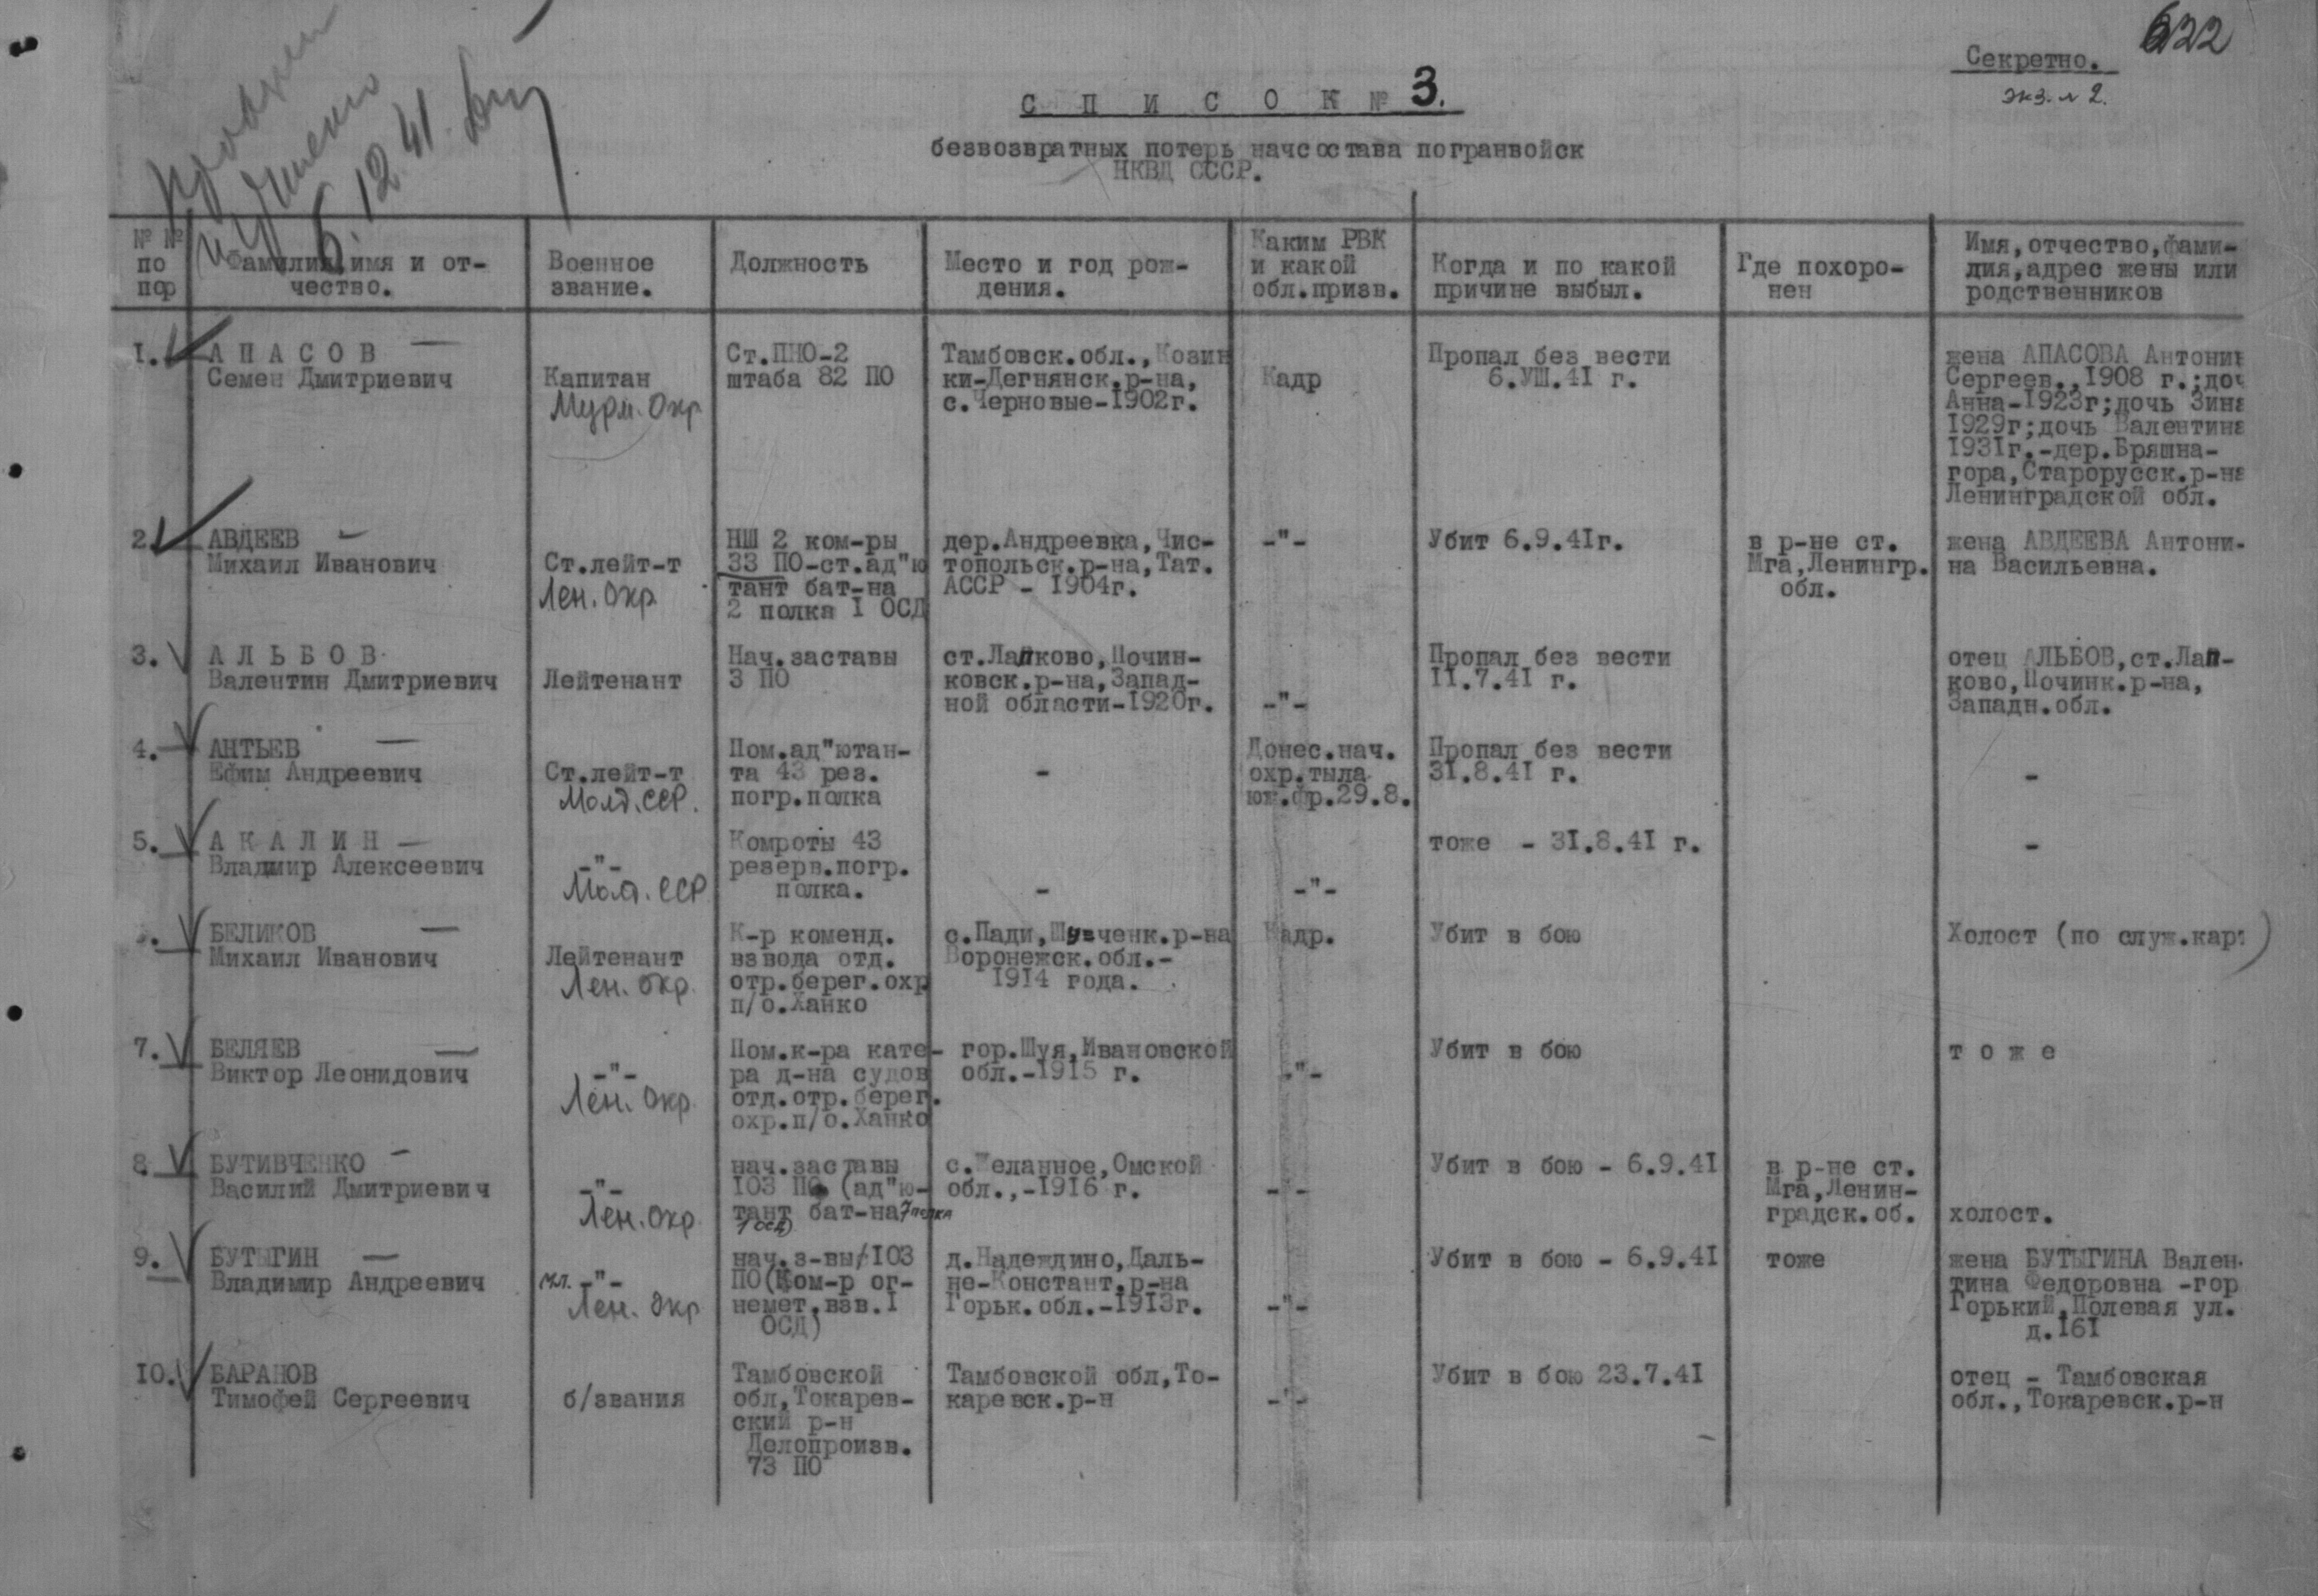 622
Секретно.
экз. № 2.
С П И С О К № 3.
безвозвратных потерь начсостава погранвойск
НКВД СССР.
6.12.41.
№ № по пор
Фамилия, имя и от-
чество.
Военное
звание.
Должность
Место и год рож-
дения.
Каким РВК
и какой
обл.призв.
Когда и по какой
причине выбыл.
Где похоро-
нен
Имя,отчество,фами-
лия,адрес жены или
родственников
1.
А П А С О В
Семен Дмитриевич
Капитан
Мурм. Окр
Ст.ПНО-2
штаба 82 ПО
Тамбовск.обл.,Козин
ки-Дегнянск.р-на,
с.Черновые-1902г.
Кадр
Пропал без вести
6.УШ.41 г.
жена АПАСОВА Антонин
Сергеев.,1908 г.;доч
Анна-1923г;дочь Зина
1929г;дочь Валентина
1931г.-дер.Бряшна-
гора,Старорусск.р-на
Ленинградской обл.
2.
АВДЕЕВ
Михаил Иванович
Ст.лейт-т
Лен. Окр.
НШ 2 ком-ры
33 ПО-ст.ад"ю
тант бат-на
2 полка 1 ОСД
дер.Андреевка,Чис-
топольск.р-на,Тат.
АССР - 1904г.
-"-
Убит 6.9.41г.
в р-не ст.
Мга,Ленингр.
обл.
жена АВДЕЕВА Антони-
на Васильевна.
3.
А Л Ь Б О В
Валентин Дмитриевич
Лейтенант
Нач.заставы
3 ПО
ст.Лапково,Почин-
ковск.р-на,Запад-
ной области-1920г.
-"-
Пропал без вести
11.7.41 г.
отец АЛЬБОВ,ст.Лап-
ково,Починк.р-на,
Западн.обл.
4.
АНТЬЕВ
Ефим Андреевич
Ст.лейт-т
Молд. ССР.
Пом.ад"ютан-
та 43 рез.
погр.полка
-
Донес.нач.
охр.тыла
юж.фр.29.8.
Пропал без вести
31.8.41 г.
-
5.
А К А Л И Н
Владмир Алексеевич
-"-
Молд. ССР
Комроты 43
резерв.погр.
полка.
-
-"-
тоже - 31.8.41 г.
-
БЕЛИКОВ
Михаил Иванович
Лейтенант
Лен. окр.
К-р коменд.
взвода отд.
отр.берег.охр
п/о.Ханко
с.Пади,Шувченк.р-на
Воронежск.обл.-
1914 года.
Кадр.
Убит в бою
Холост (по служ.карт)
7.
БЕЛЯЕВ
Виктор Леонидович
-"-
Лен. Окр.
Пом.к-ра кате-
ра д-на судов
отд.отр.берег.
охр.п/о.Ханко
гор.Шуя,Ивановской
обл.-1915 г.
-"-
Убит в бою
т о ж е
8.
БУТИВЧЕНКО
Василий Дмитриевич
-"-
Лен. Окр.
нач.заставы
103 ПО (ад"ю-
тант бат-на 7 полка
1 ОСД)
с.Желанное,Омской
обл.,-1916 г.
- -
Убит в бою - 6.9.41
в р-не ст.
Мга,Ленин-
градск.об.
холост.
9.
БУТЫГИН
Владимир Андреевич
мл. -"-
Лен. Окр
нач.з-вы 103
ПО(Ком-р ог-
немет.взв.1
ОСД)
д.Надеждино,Даль-
не-Констант.р-на
Горьк.обл.-1913г.
-"-
Убит в бою - 6.9.41
тоже
жена БУТЫГИНА Вален-
тина Федоровна -гор
Горький,Полевая ул.
д.161
10.
БАРАНОВ
Тимофей Сергеевич
б/звания
Тамбовской
обл,Токарев-
ский р-н
Делопроизв.
73 ПО
Тамбовской обл,То-
каревск.р-н
-"-
Убит в бою 23.7.41
отец - Тамбовская
обл.,Токаревск.р-н